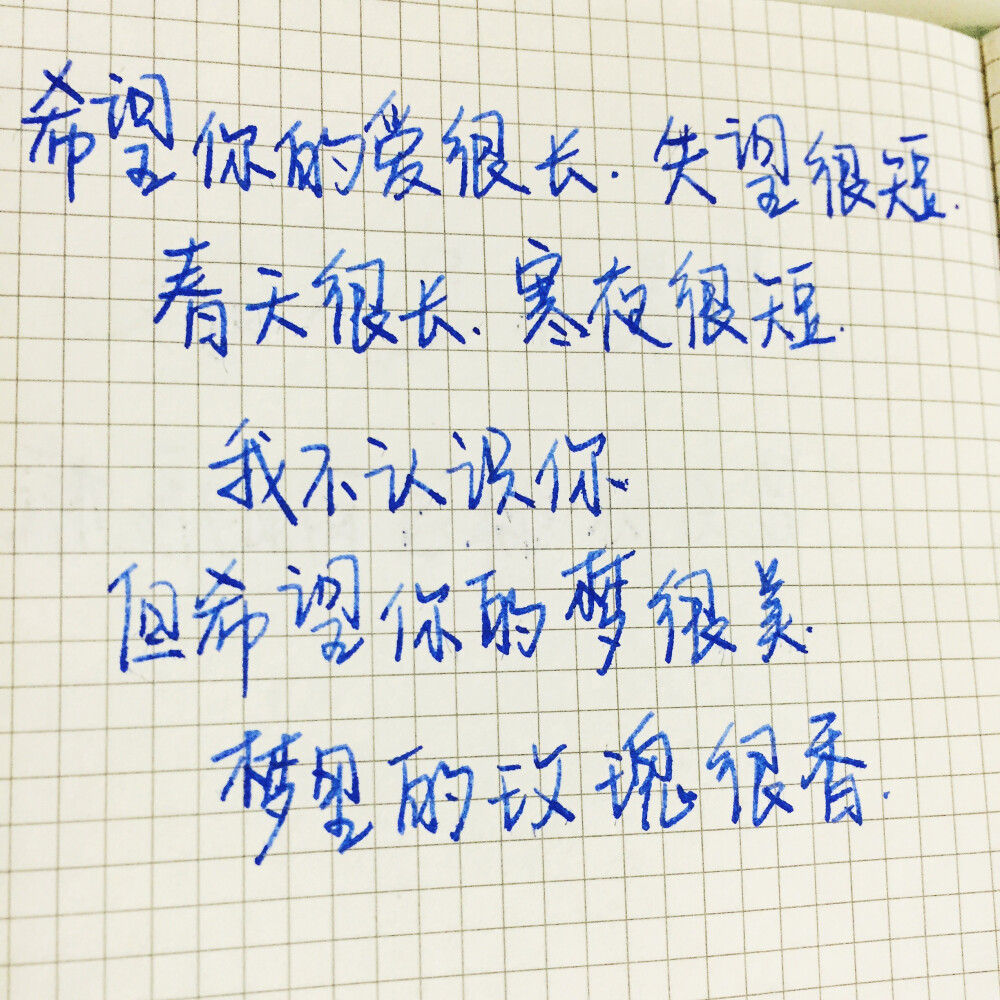 希望你的爱很长.失望很短.
春天很长.寒夜很短.
我不认识你.
但希望你的梦很美.
梦里的玫瑰很香.